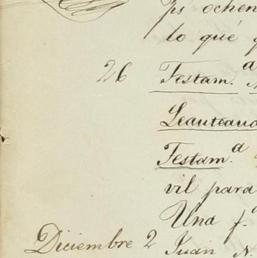 ps ochen
lo qué
26 Testam.ª
Leauteaud
Testam.ª
vil para
Una f.ª
Diciembre 2 Juan N.